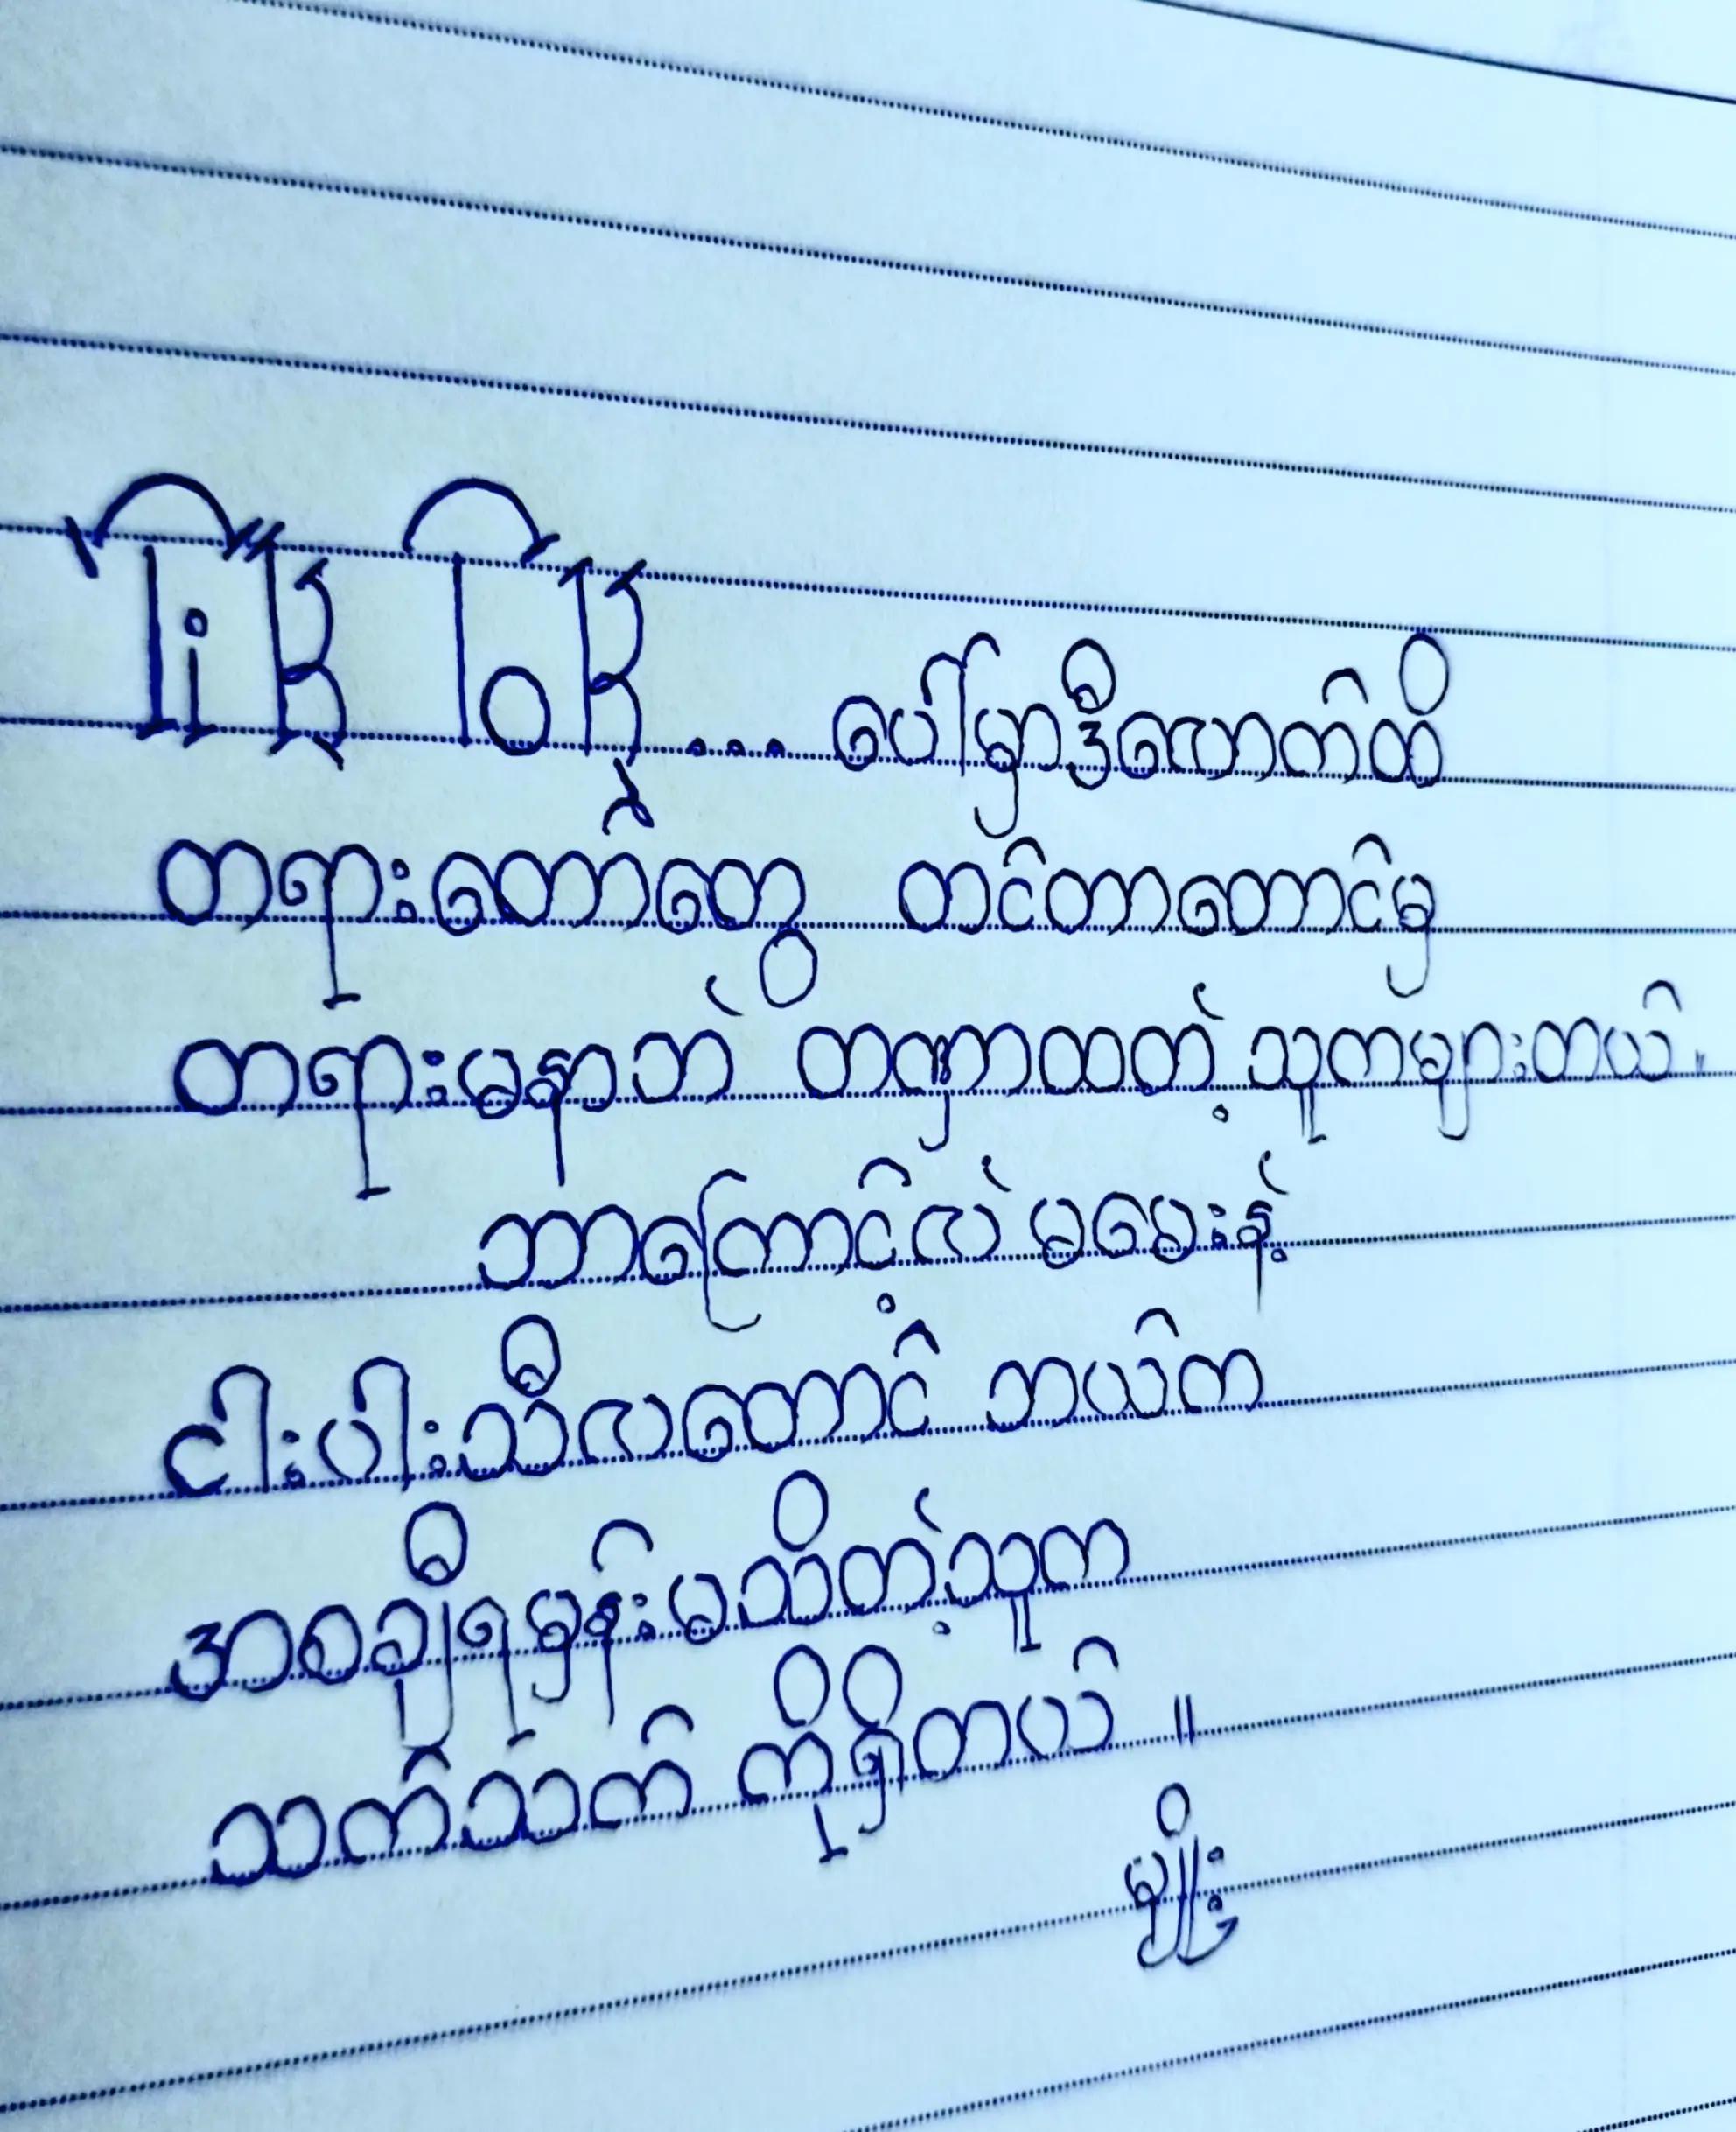 Tik Tok... ပေါ်မှာဒီလောက်ထိ
တရားတော်တွေ တင်တာတောင်မှ
တရားမနာဘဲ တဏှာထတဲ့ သူကများတယ်။
ဘာကြောင့်လဲ မမေးနဲ့
ငါးပါးသီလတောင် ဘယ်က
အာချီရမှန်းမသိတဲ့သူက
သက်သက် ကိုရှိတယ် ။
မျိုး